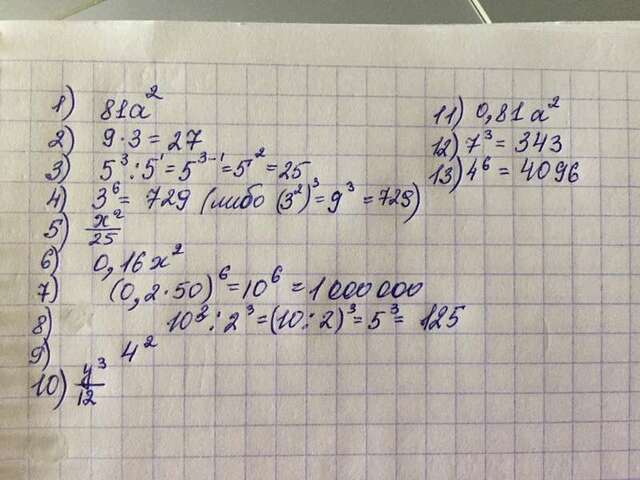 1) 81a²
2) 9·3=27
3) 5³:5¹=5³⁻¹=5²=25
4) 3⁶= 729 (либо (3²)³=9³=725)
5) x²/25
6) 0,16x²
7) (0,2·50)⁶=10⁶=1000000
8) 10³:2³=(10:2)³=5³= 125
9) 4²
10) y³/12
11) 0,81a²
12) 7³=343
13) 4⁶=4096